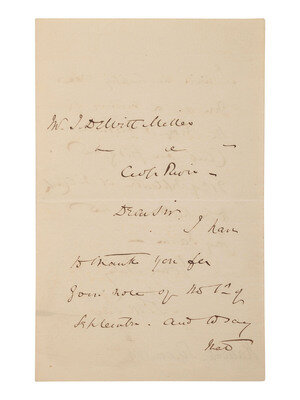 Mr. J. DeWitt Miller
Dear Sir.
I have
to thank you for
your note of the 1st of
September. and to say
that